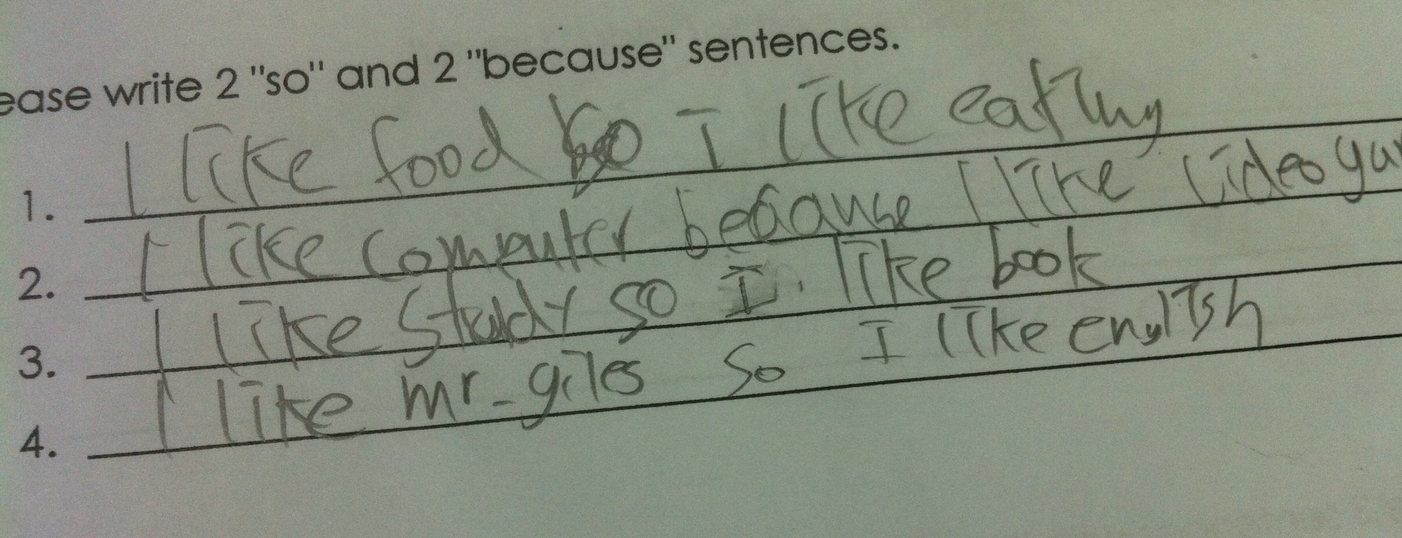 ease write 2 "so" and 2 "because" sentences.
1. I like food so I like eating
2. I like computer because I like video
3. I like study so I like book
4. I like mr. giles so I like english